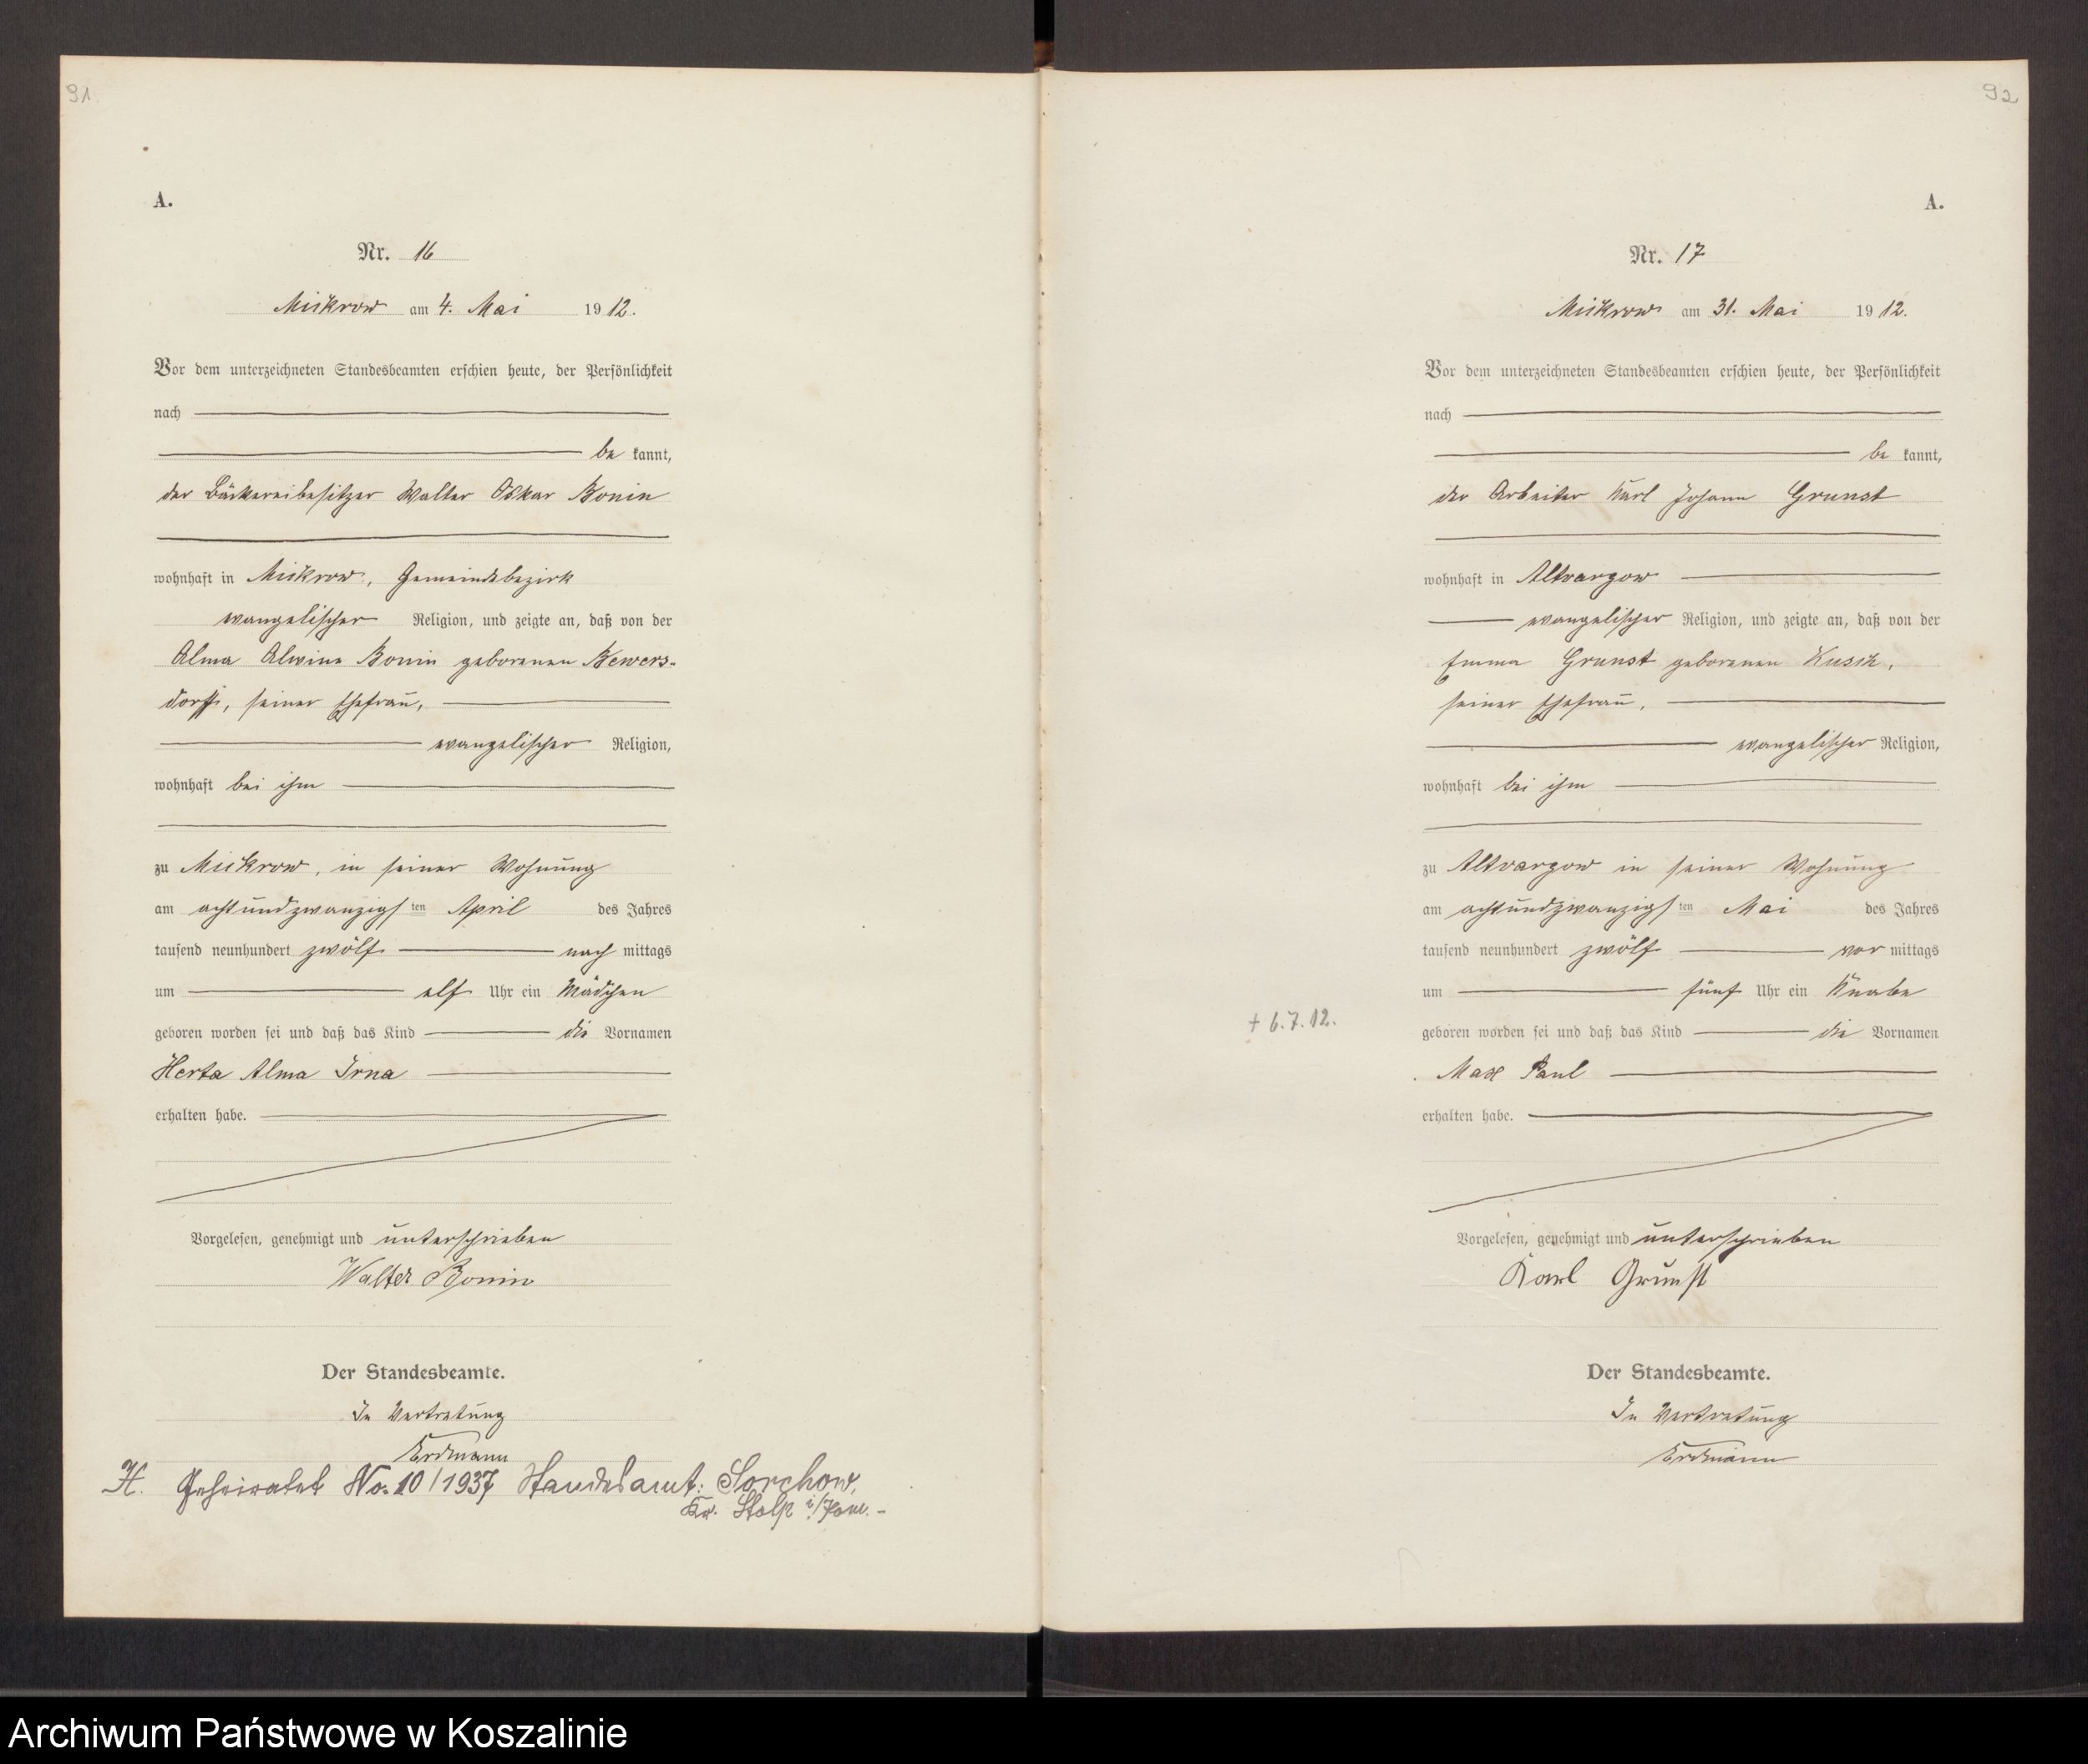 91
A.
Nr. 16
Mickrow am 4. Mai 1912.
Vor dem unterzeichneten Standesbeamten erschien heute, der Persönlichkeit
nach
be kannt,
der Bäckereibesitzer Walter Oskar Bonin
wohnhaft in Mickrow, Gemeindebezirk
evangelischer Religion, und zeigte an, daß von der
Alma Alwine Bonin geborenen Bewers-
dorff, seiner Ehefrau,
evangelischer Religion,
wohnhaft bei ihm
zu Mickrow, in seiner Wohnung
am achtundzwanzigsten April des Jahres
tausend neunhundert zwölf nach mittags
um elf Uhr ein Mädchen
geboren worden sei und daß das Kind die Vornamen
Herta Alma Irna
erhalten habe.
Vorgelesen, genehmigt und unterschrieben
Walter Bonin
Der Standesbeamte.
In Vertretung
Erdmann
H. Geheiratet No. 10/1937 Standesamt: Sorchow,
Kr. Stolp i/Pom. -
92
A.
Nr. 17
Mickrow am 31. Mai 1912.
Vor dem unterzeichneten Standesbeamten erschien heute, der Persönlichkeit
nach
be kannt,
der Arbeiter Karl Johann Grunst
wohnhaft in Altvargow
evangelischer Religion, und zeigte an, daß von der
Emma Grunst geborenen Kusch,
seiner Ehefrau,
evangelischer Religion,
wohnhaft bei ihm
zu Altvargow in seiner Wohnung
am achtundzwanzigsten Mai des Jahres
tausend neunhundert zwölf vor mittags
um fünf Uhr ein Knabe
+ 6.7.12.
geboren worden sei und daß das Kind die Vornamen
Max Paul
erhalten habe.
Vorgelesen, genehmigt und unterschrieben
Karl Grunst
Der Standesbeamte.
In Vertretung
Erdmann
Archiwum Państwowe w Koszalinie